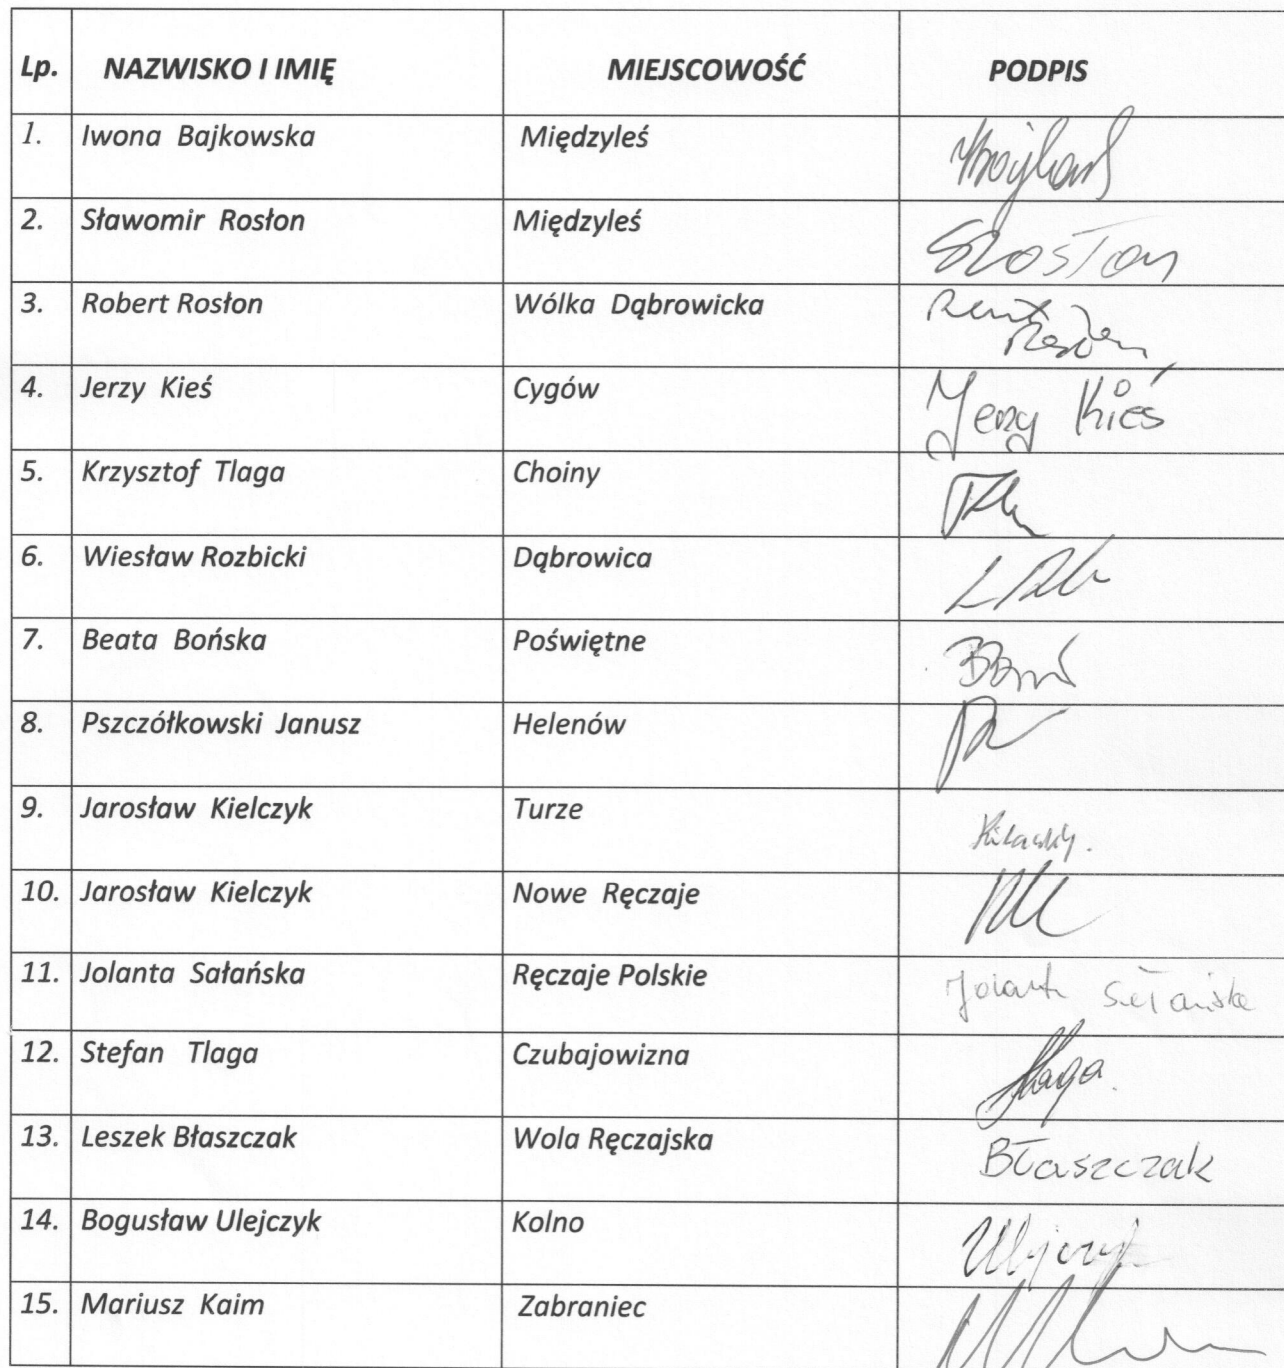 Lp. NAZWISKO I IMIĘ MIEJSCOWOŚĆ PODPIS
1. Iwona Bajkowska Międzyleś
2. Sławomir Rosłon Międzyleś SRosłon
3. Robert Rosłon Wólka Dąbrowicka
4. Jerzy Kieś Cygów Jerzy Kieś
5. Krzysztof Tlaga Choiny
6. Wiesław Rozbicki Dąbrowica
7. Beata Bońska Poświętne
8. Pszczółkowski Janusz Helenów
9. Jarosław Kielczyk Turze
10. Jarosław Kielczyk Nowe Ręczaje
11. Jolanta Sałańska Ręczaje Polskie Jolanta Sałańska
12. Stefan Tlaga Czubajowizna
13. Leszek Błaszczak Wola Ręczajska Błaszczak
14. Bogusław Ulejczyk Kolno
15. Mariusz Kaim Zabraniec